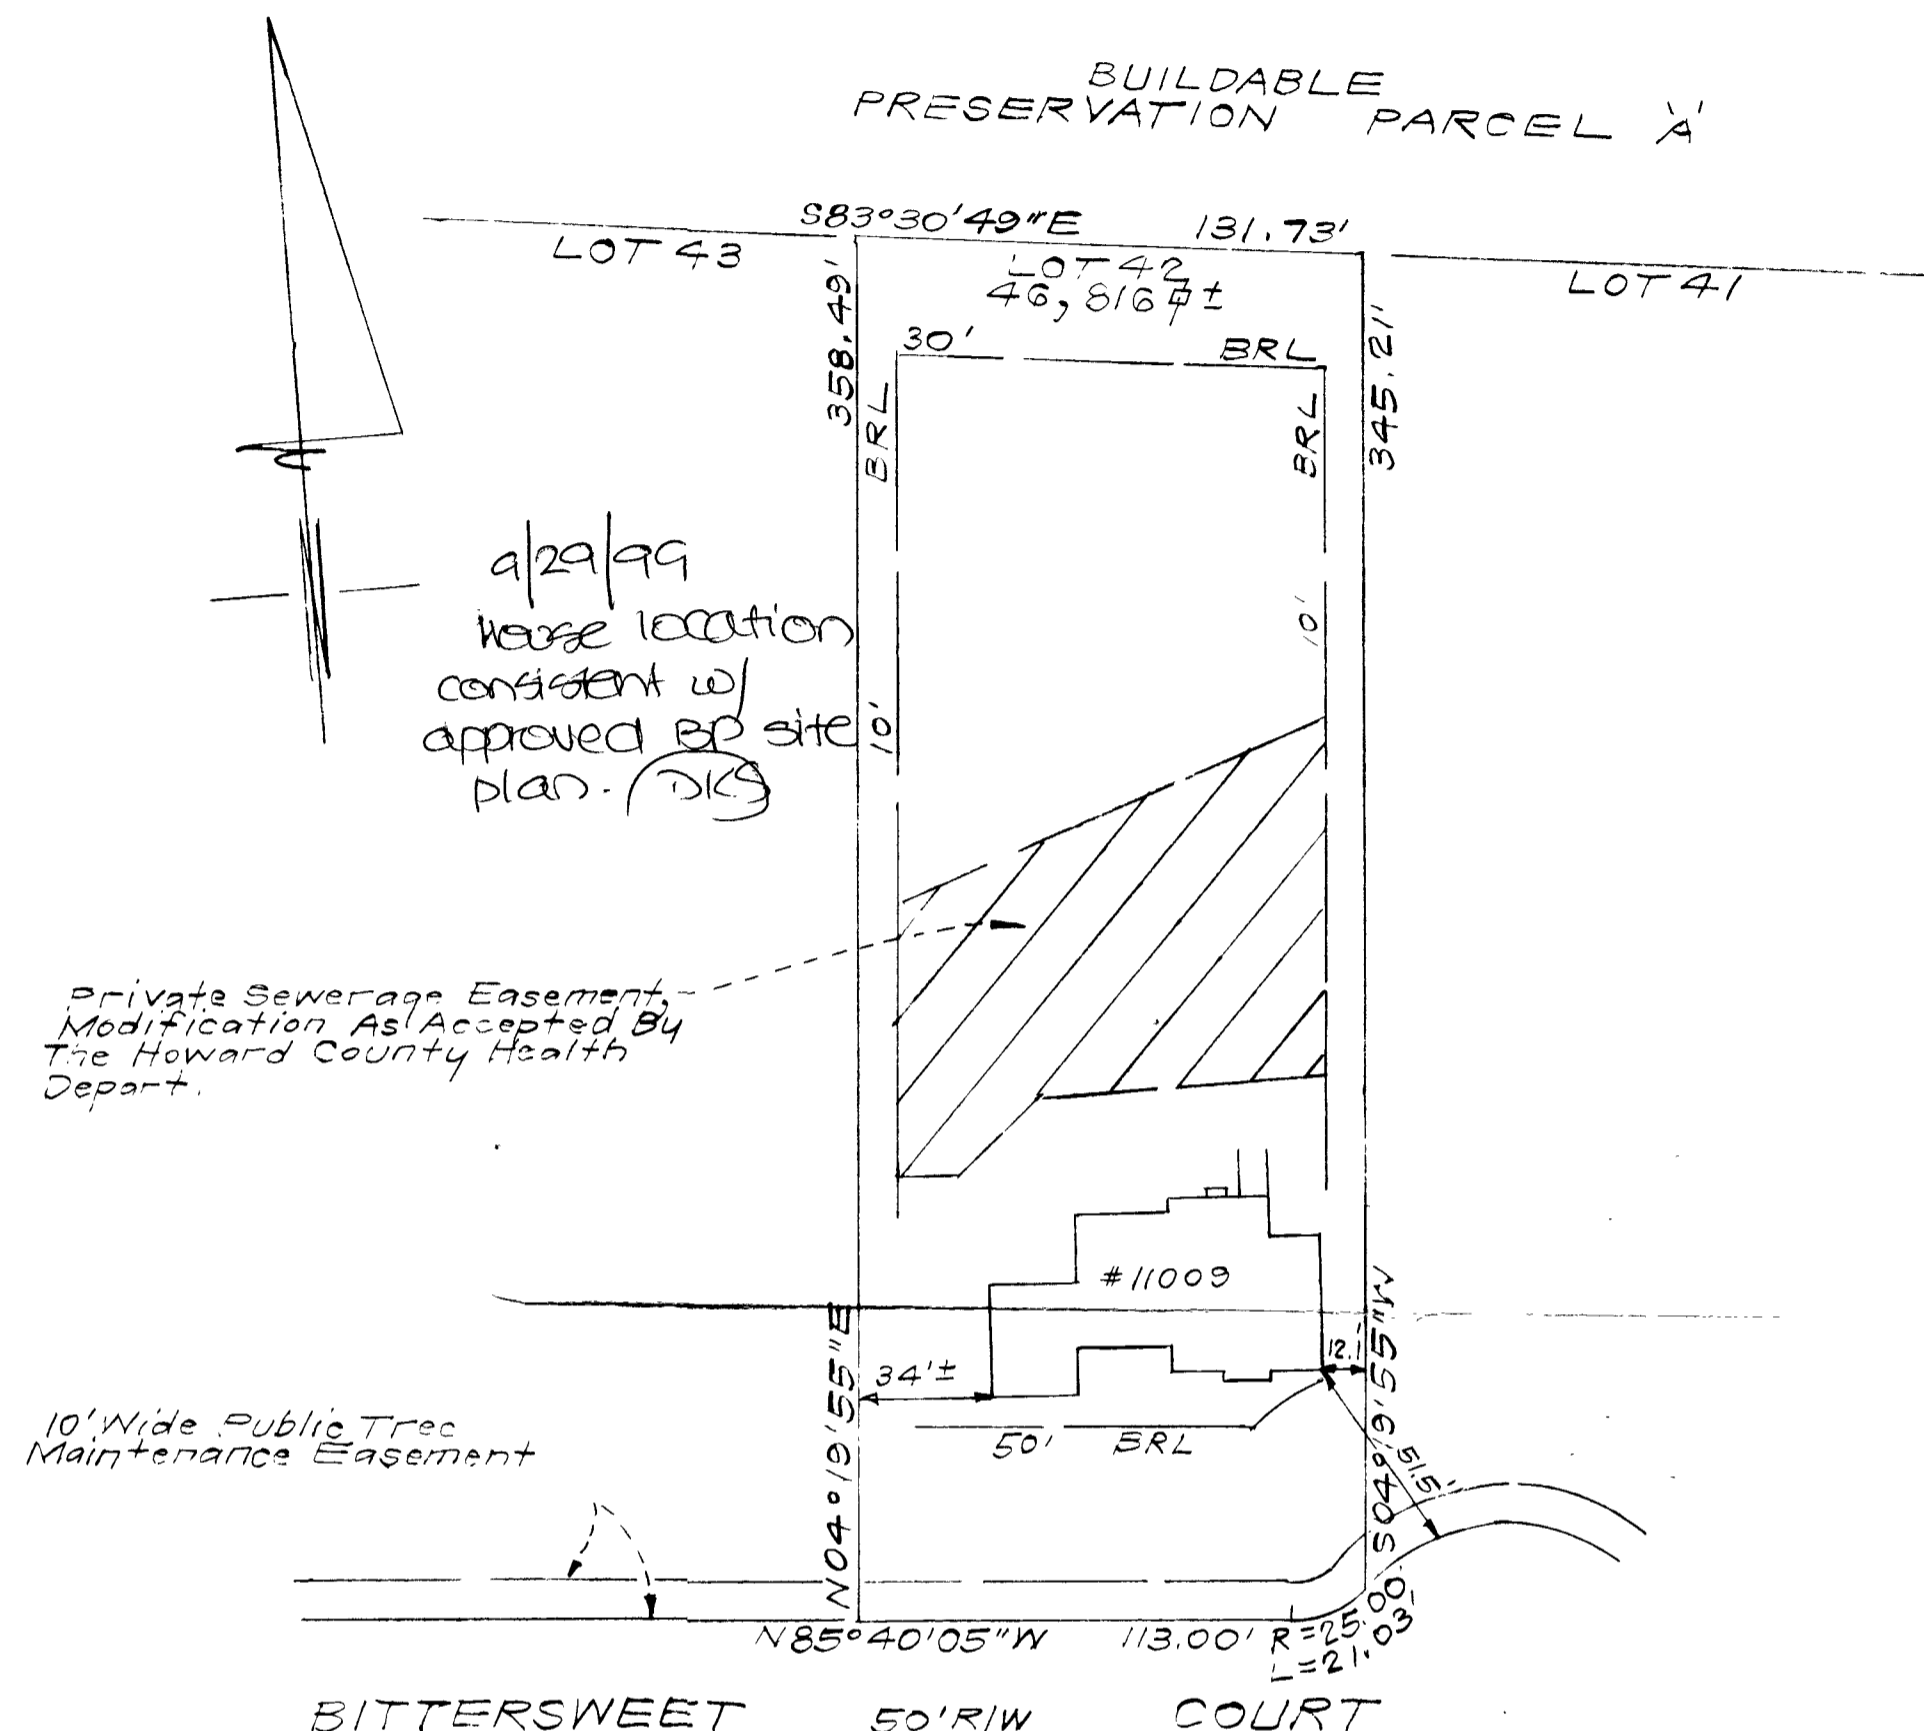 BUILDABLE
PRESERVATION PARCEL 'A'
S83°30'49"E 131.73'
LOT 43
LOT 42
46,816 ±
LOT 41
358.49'
345.21'
30' BRL
BRL
BRL
10'
10'
9/29/99
House location
consistent w/
approved BP site
plan. DKS
Private Sewerage Easement,
Modification As Accepted By
The Howard County Health
Depart.
#11009
12.1'
34'±
50' BRL
51.5'
N04°19'55"E
S04°19'55"W
10' Wide Public Tree
Maintenance Easement
N85°40'05"W 113.00'
R=25.00'
L=21.03'
BITTERSWEET 50'R/W COURT